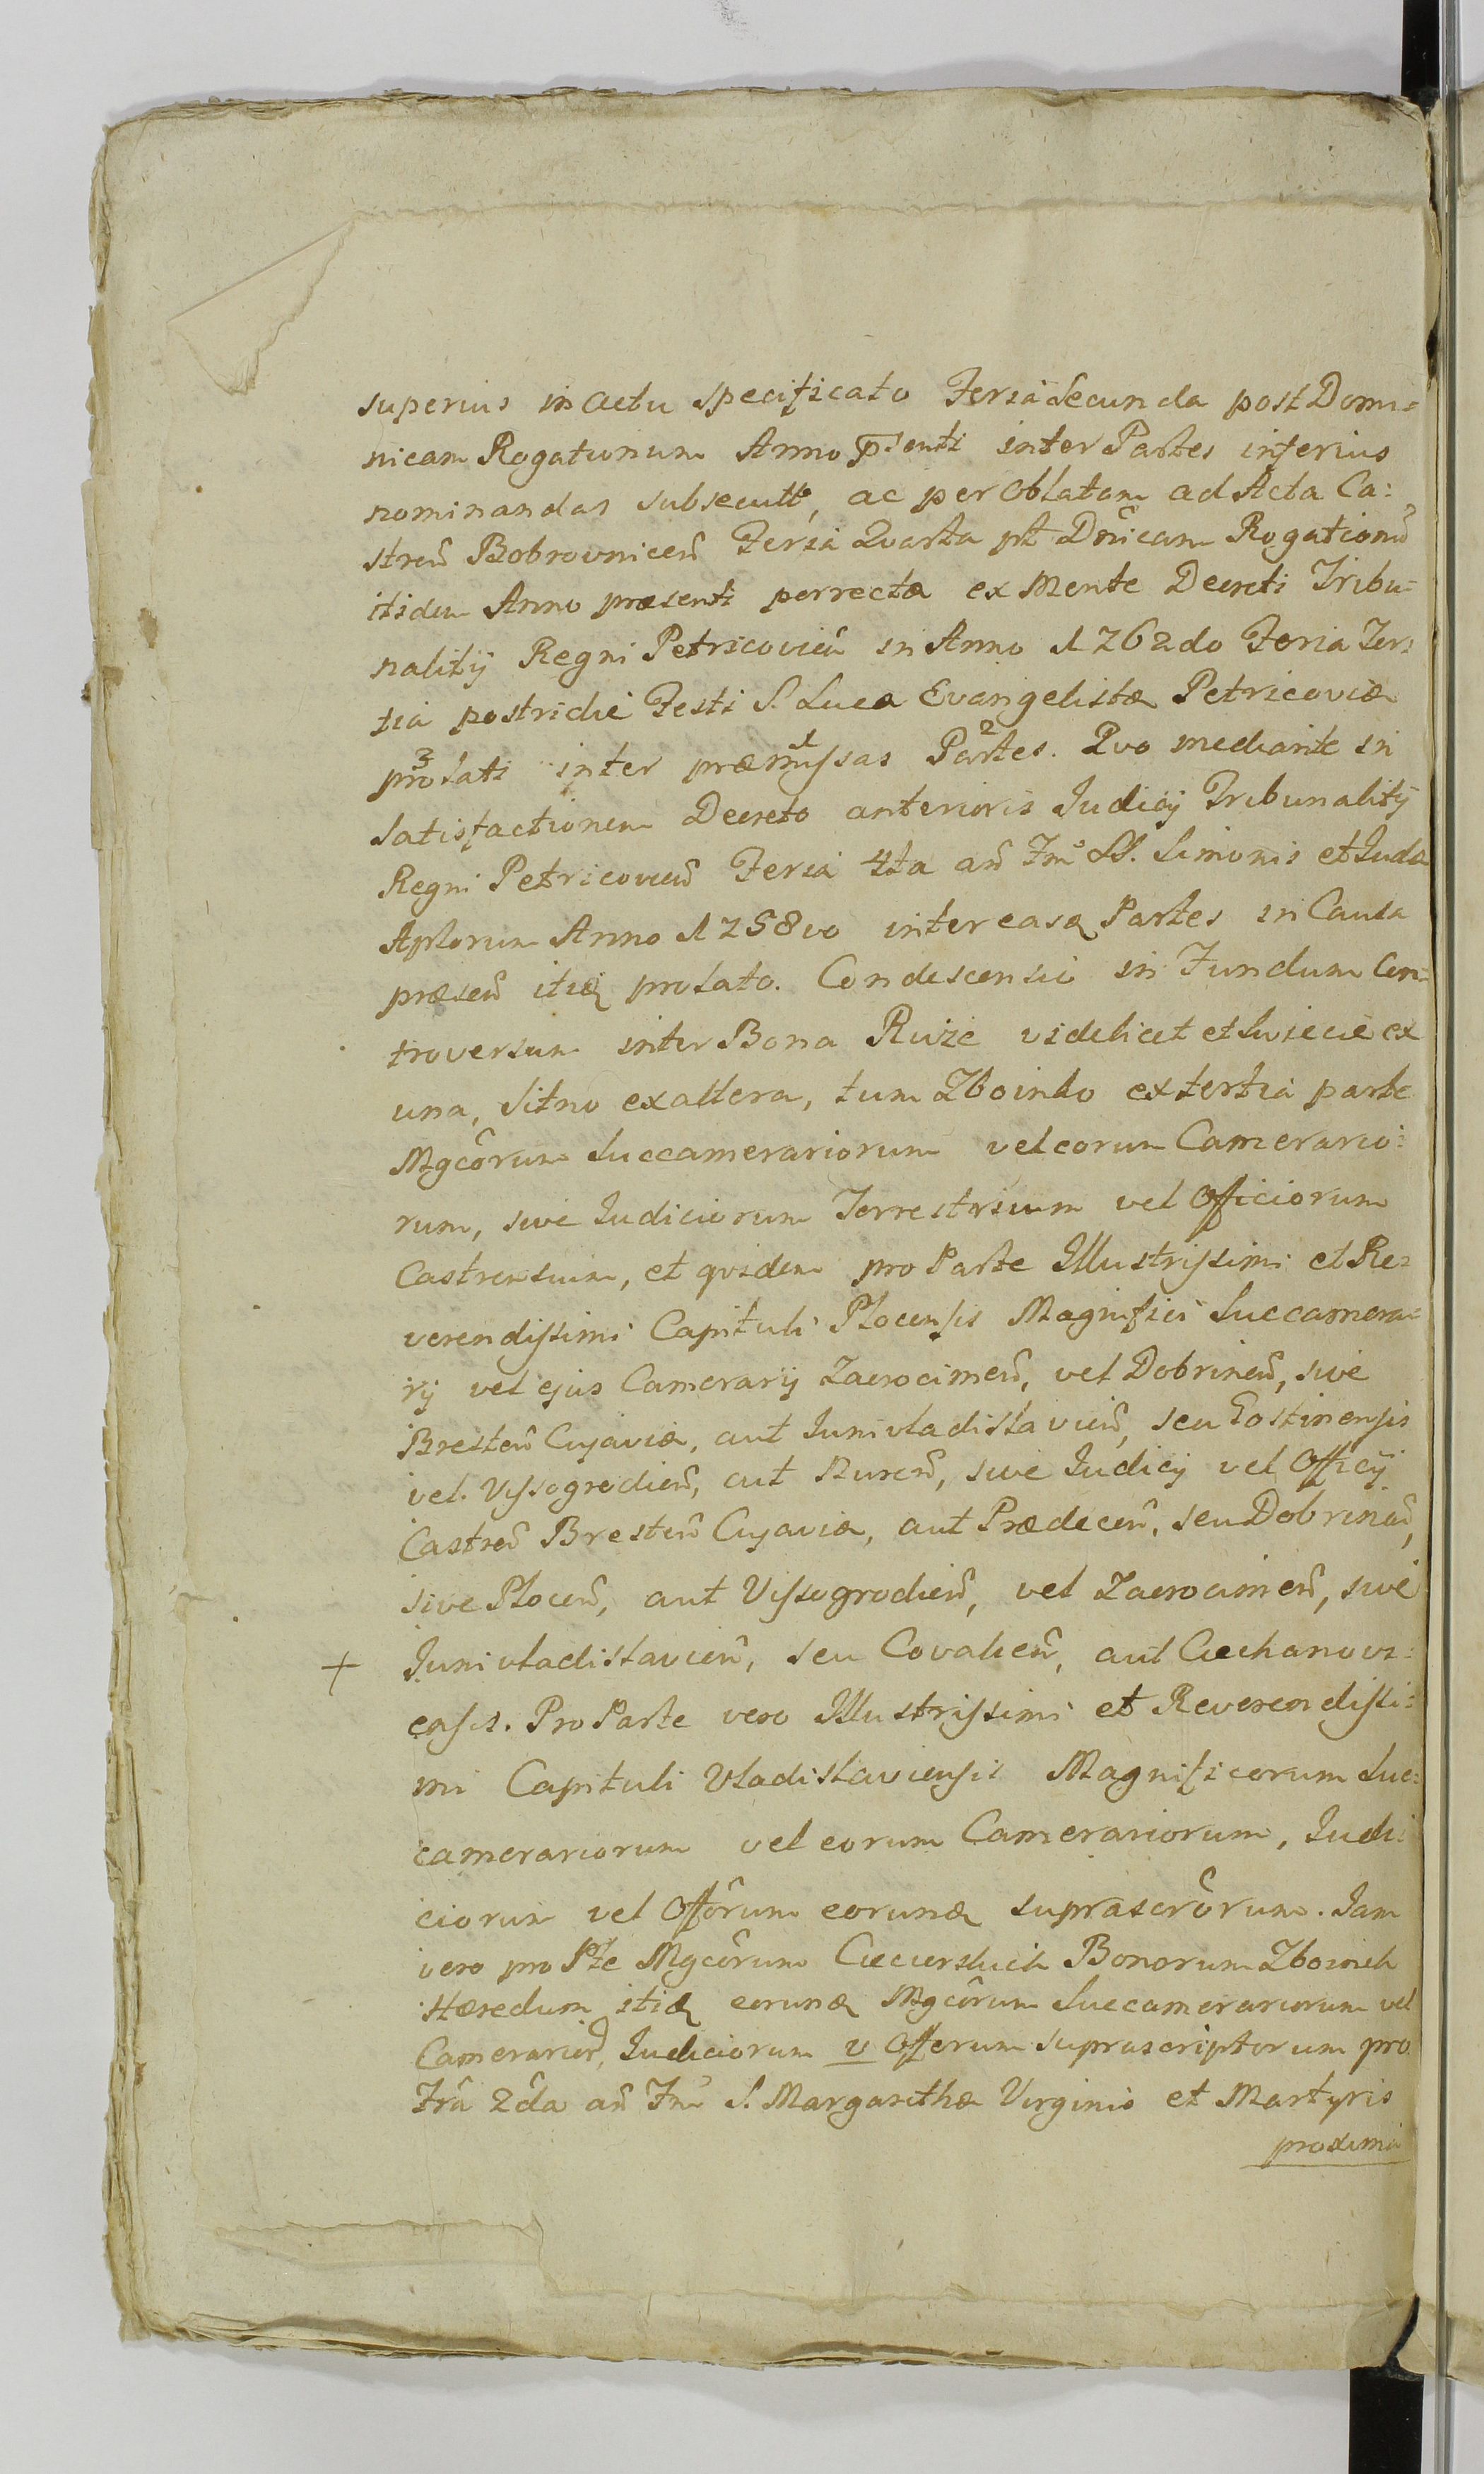 superius in actu specificato Feria Secunda post Domi=
nicam Rogationum Anno p̄senti inter Partes inferius
nominandas subsecuttæ, ac per Oblatam ad Acta Ca:
streñ Bobrovniceñ Feria Qvarta pt Dnicam Rogationũ
itidem Anno præsenti porrectæ ex Mente Decreti Tribu=
nalitij Regni Petricovieñ in Anno 1762do Feria Ter:
tia postridie Festi S. Lucæ Evangelistæ Petricoviæ
3 1 2
prolati inter præmissas Partes. Qvo mediante in
Satisfactionem Decreto anterioris Judicij Tribunalitij
Regni Petricovieñ Feria 4ta añ Fm̃ SS. Simonis et Judæ
Aplorum Anno 1758vo inter easq Partes in Causa
præseñ itidq prolato. Condescensii in Fundum Con=
troversum inter Bona Ruże videlicet et Swiecie ex
una, Sitno ex altera, tum Zboinko ex tertia parte
Mgcôrum Succamerariorum vel eorum Camerario:
rum, sive Judiciorum Terrestrium vel Officiorum
Castrensium, et qvidem pro Parte Illustrissimi et Re=
verendissimi Capituli Plocensis Magnifici Succamera=
rij vel ejus Camerarij Zacrocimeñ, vel Dobrineñ, sive
Bresteñ Cujaviæ, aut Junivladislavieñ, seu Gostinensis
vel Vyssogrodieñ, aut Rureñ, sive Judicij vel Officij
Castreñ Bresteñ Cujaviæ, aut Prædeceñ, seu Dobrineñ,
sive Ploceñ, aut Vissogrodieñ, vel Zacrocimeñ, sive
+ Junivladislavieñ, seu Covalieñ, aut Ciechanovi:
ensis. Pro Parte vero Illustrissimi et Reverendissi:
mi Capituli Vladislaviensis Magnificorum Suc:
camerariorum vel eorum Camerariorum, Judi:
ciorum vel Offôrum eorundq suprascrôrum. Jam
vero pro Pte Mgcôrum Ciecierskich Bonorum Zboinek
Hæredum itidq eorundq Mgcôrum Succamerariorum vel
Camerarior̃, Judiciorum v Offorum suprascriptorum pro
Fra 2da añ Fm̃ S. Margarethæ Virginis et Martyris
proxima